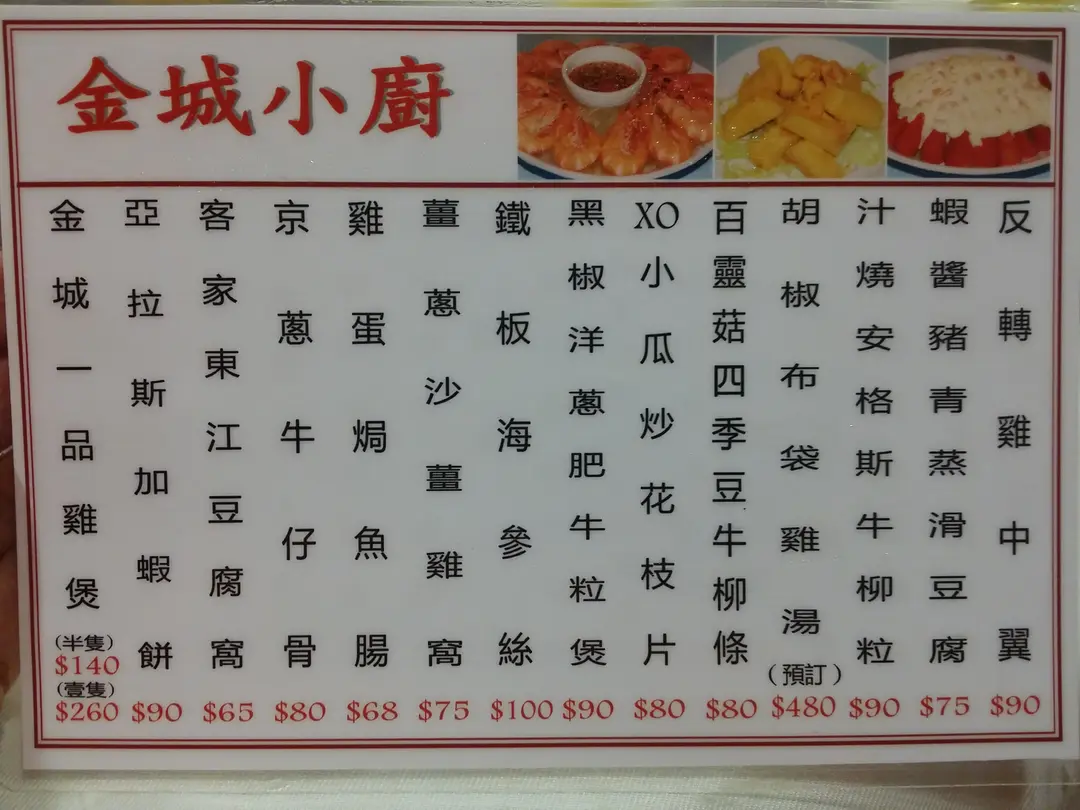 金城小廚
反轉雞中翼
$90
蝦醬豬青蒸滑豆腐
$75
汁燒安格斯牛柳粒
$90
胡椒布袋雞湯
(預訂)
$480
百靈菇四季豆牛柳條
$80
XO小瓜炒花枝片
$80
黑椒洋蔥肥牛粒煲
$90
鐵板海參絲
$100
薑蔥沙薑雞窩
$75
雞蛋焗魚腸
$68
京蔥牛仔骨
$80
客家東江豆腐窩
$65
亞拉斯加蝦餅
$90
金城一品雞煲
(半隻)
$140
(壹隻)
$260